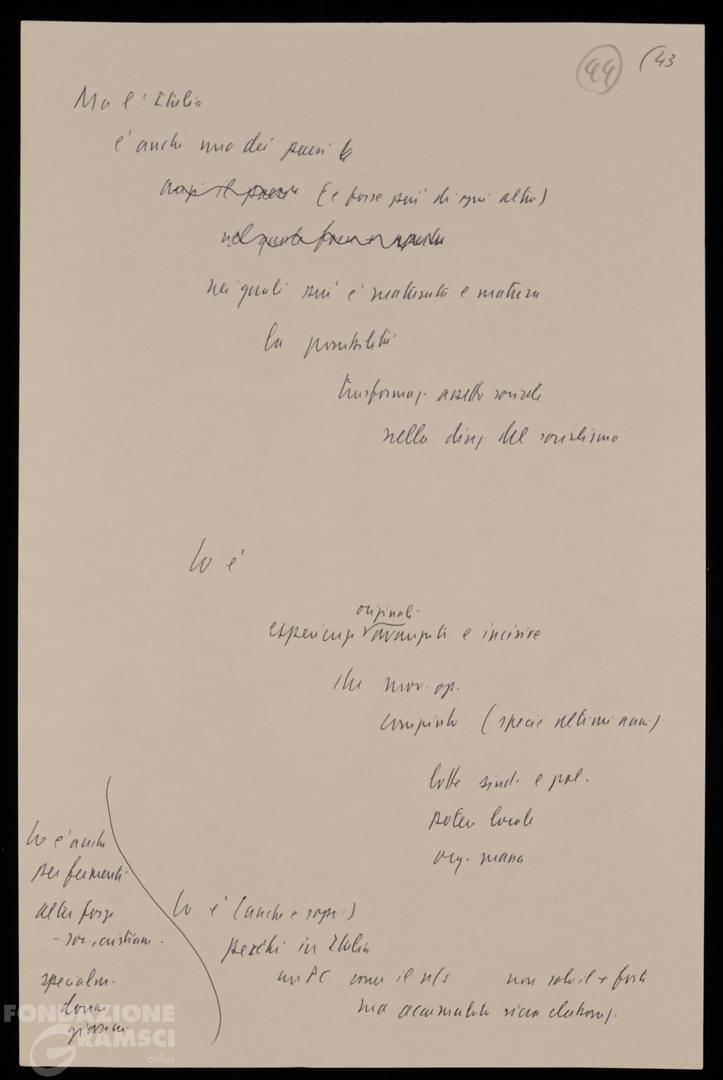 44 (43
Ma l'Italia
è anche uno dei paesi
(e forse più di ogni altro)
nei quali più è maturata e matura
la possibilità
trasformaz. assetto sociale
nella direz. del socialismo
Lo è
originali
esperienze avanzate e incisive
che mov. op.
compiuto (specie ultimi anni)
lotte sind. e pol.
potere locale
org. massa
Lo è anche
per fermenti
altre forze
- soc., cristian.
specialm.
donne
giovani
Lo è (anche e sopr.)
perché in Italia
un PC come il ns/ non solo il + forte
ma accumulato elaboraz.
FONDAZIONE
GRAMSCI
onlus